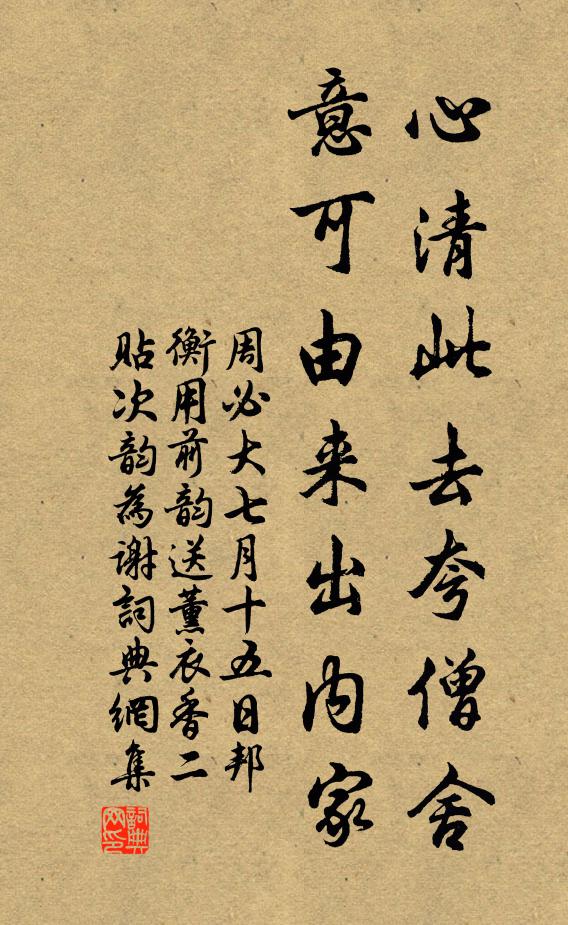 心清此去夸僧舍
意可由来出内家
周必大七月十五日邦
衡用前韵送薰衣香二
贴次韵為谢詞典網集
詞典网印